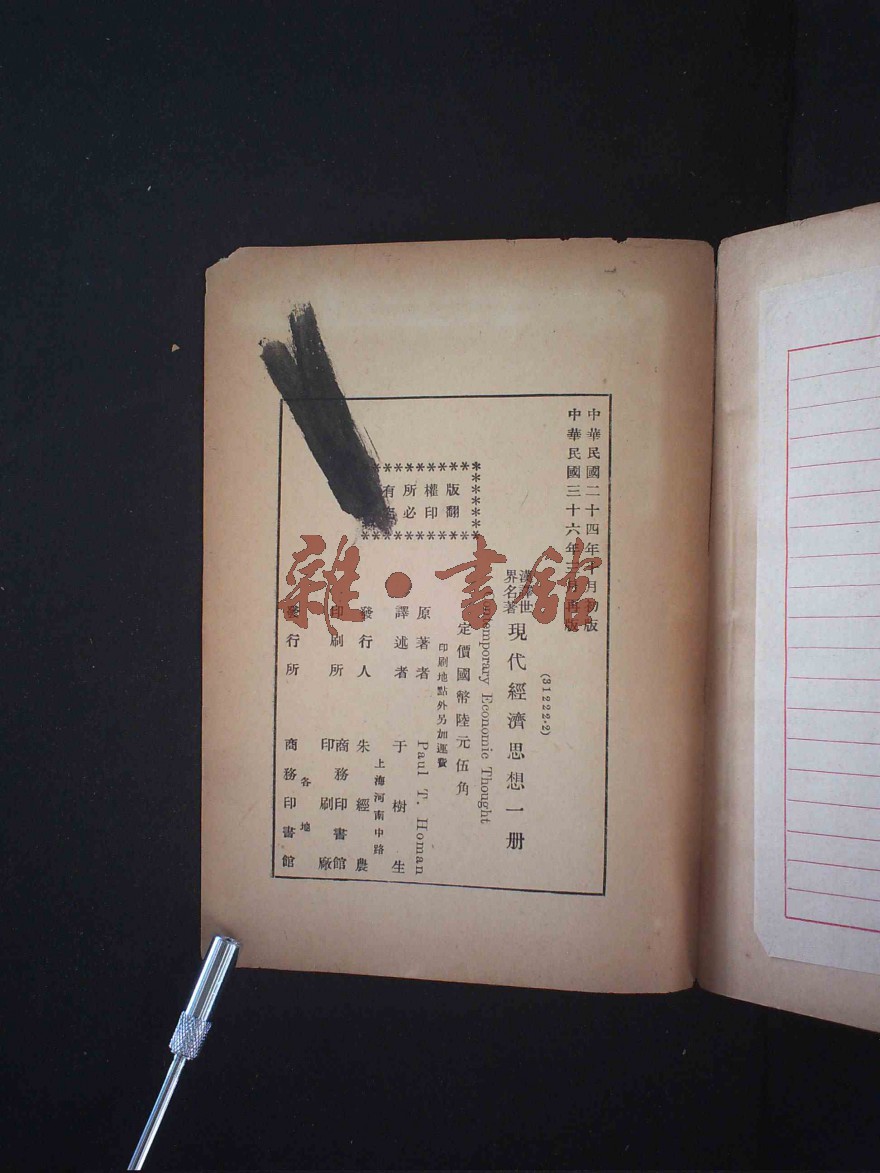 中華民國二十四年十月初版
中華民國三十六年三月再版
(31222·2)
漢譯世
界名著
現代經濟思想一册
Contemporary Economic Thought
定價國幣陸元伍角
印刷地點外另加運費
版權所有
翻印必
原著者 Paul T. Homan
譯述者 于樹生
上海河南中路
發行人 朱經農
印刷所 商務印書館
印刷廠
各地
發行所 商務印書館
雜·書館